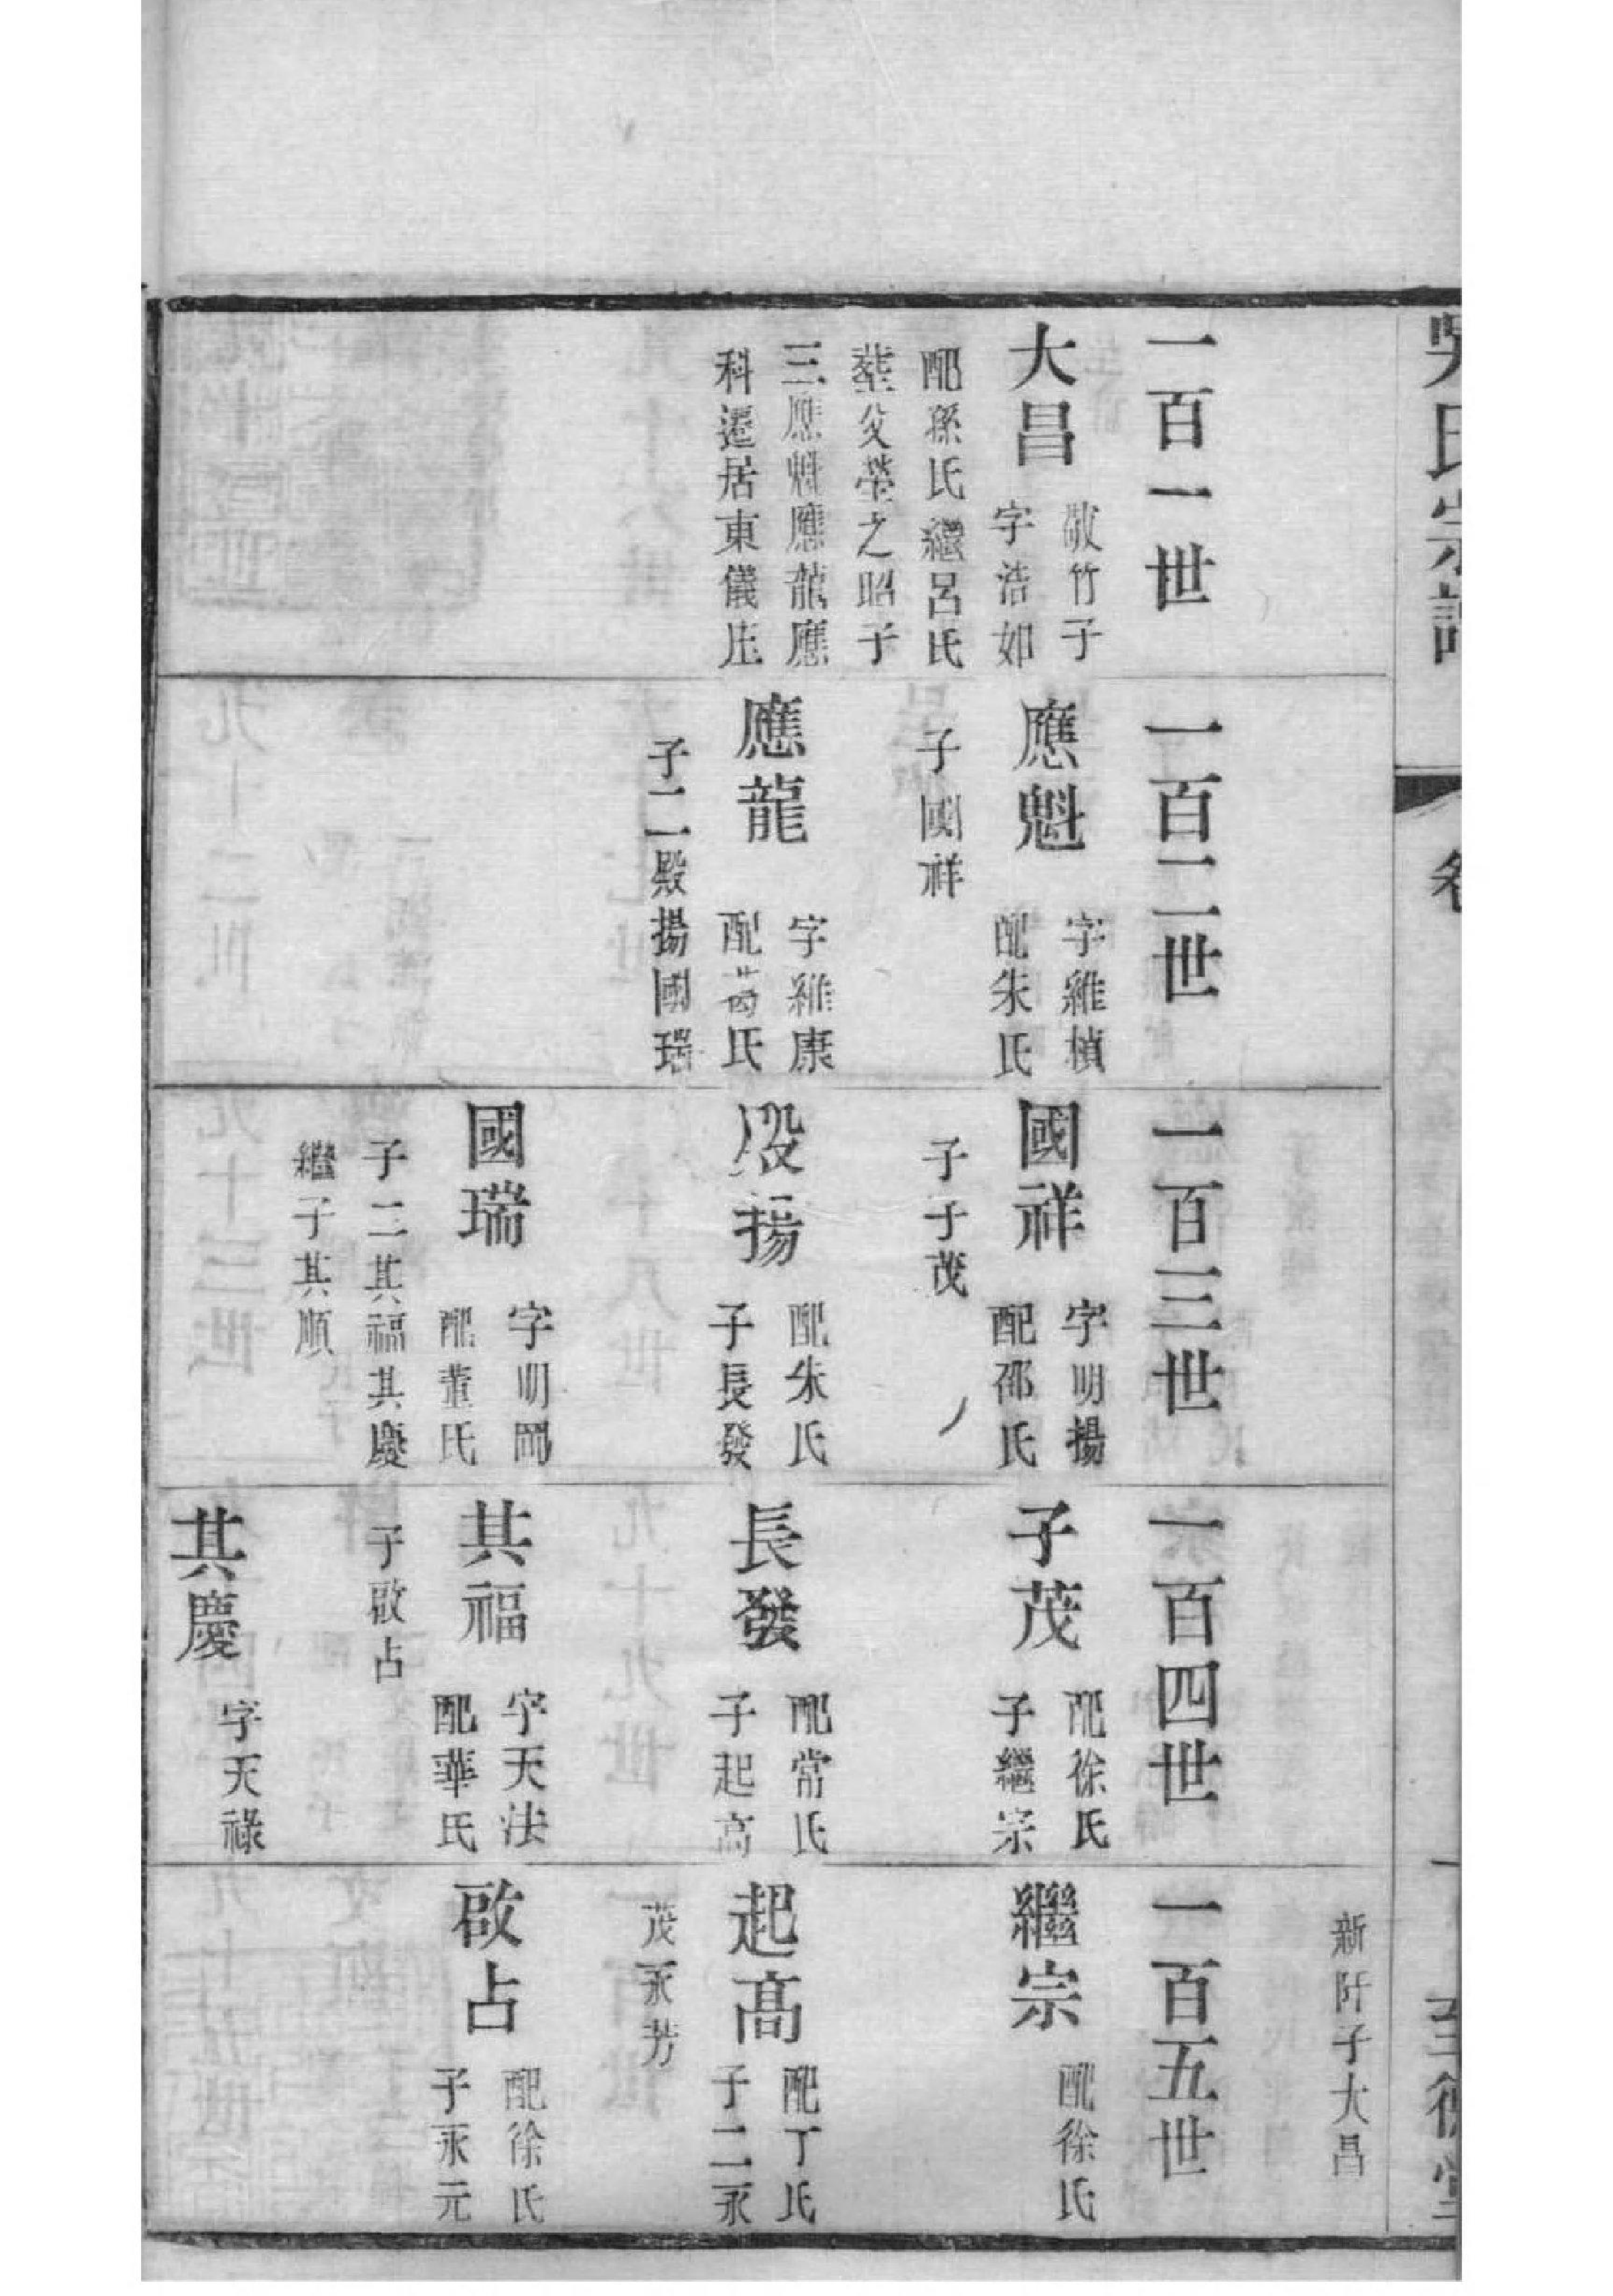 吳氏宗譜
卷
至德堂
新阡子大昌
一百一世
大昌
敬竹子
字浩如
配孫氏繼呂氏
葬父塋之昭子
三應魁應龍應
科遷居東儀庄
一百二世
應魁
字維楨
配朱氏
子國祥
應龍
字維康
配葛氏
子二殿揚國瑞
一百三世
國祥
字明揚
配邵氏
子子茂
殿揚
配朱氏
子長發
國瑞
字明岡
配董氏
子二其福其慶
繼子其順
一百四世
子茂
配徐氏
子繼宗
長發
配常氏
子起高
其福
字天法
配華氏
子啟占
其慶
字天祿
一百五世
繼宗
配徐氏
起髙
配丁氏
子二永
茂永芳
啟占
配徐氏
子永元